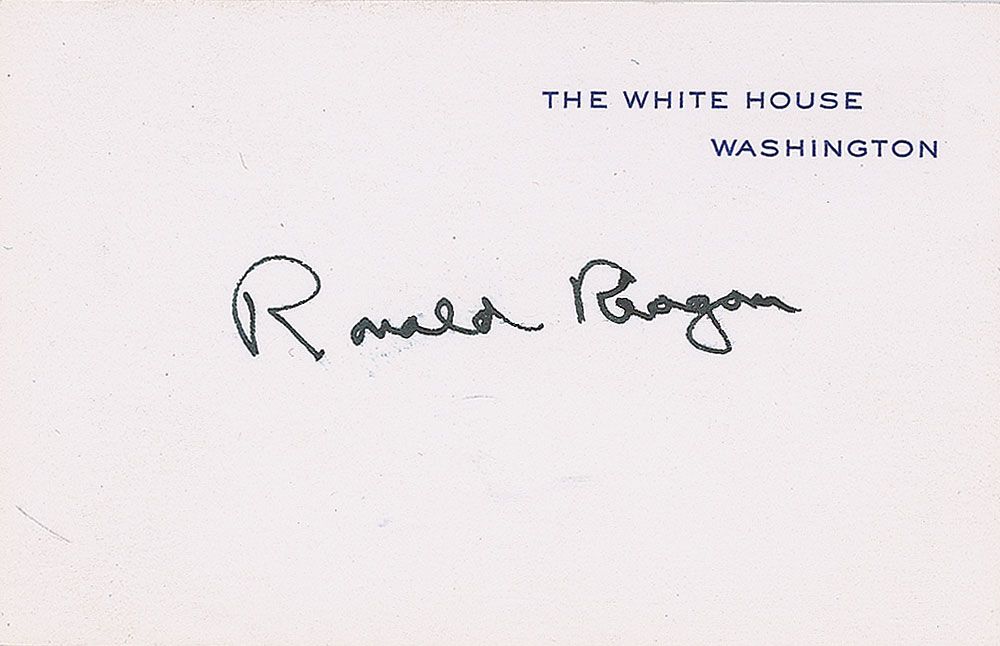 THE WHITE HOUSE
WASHINGTON
Ronald Reagan